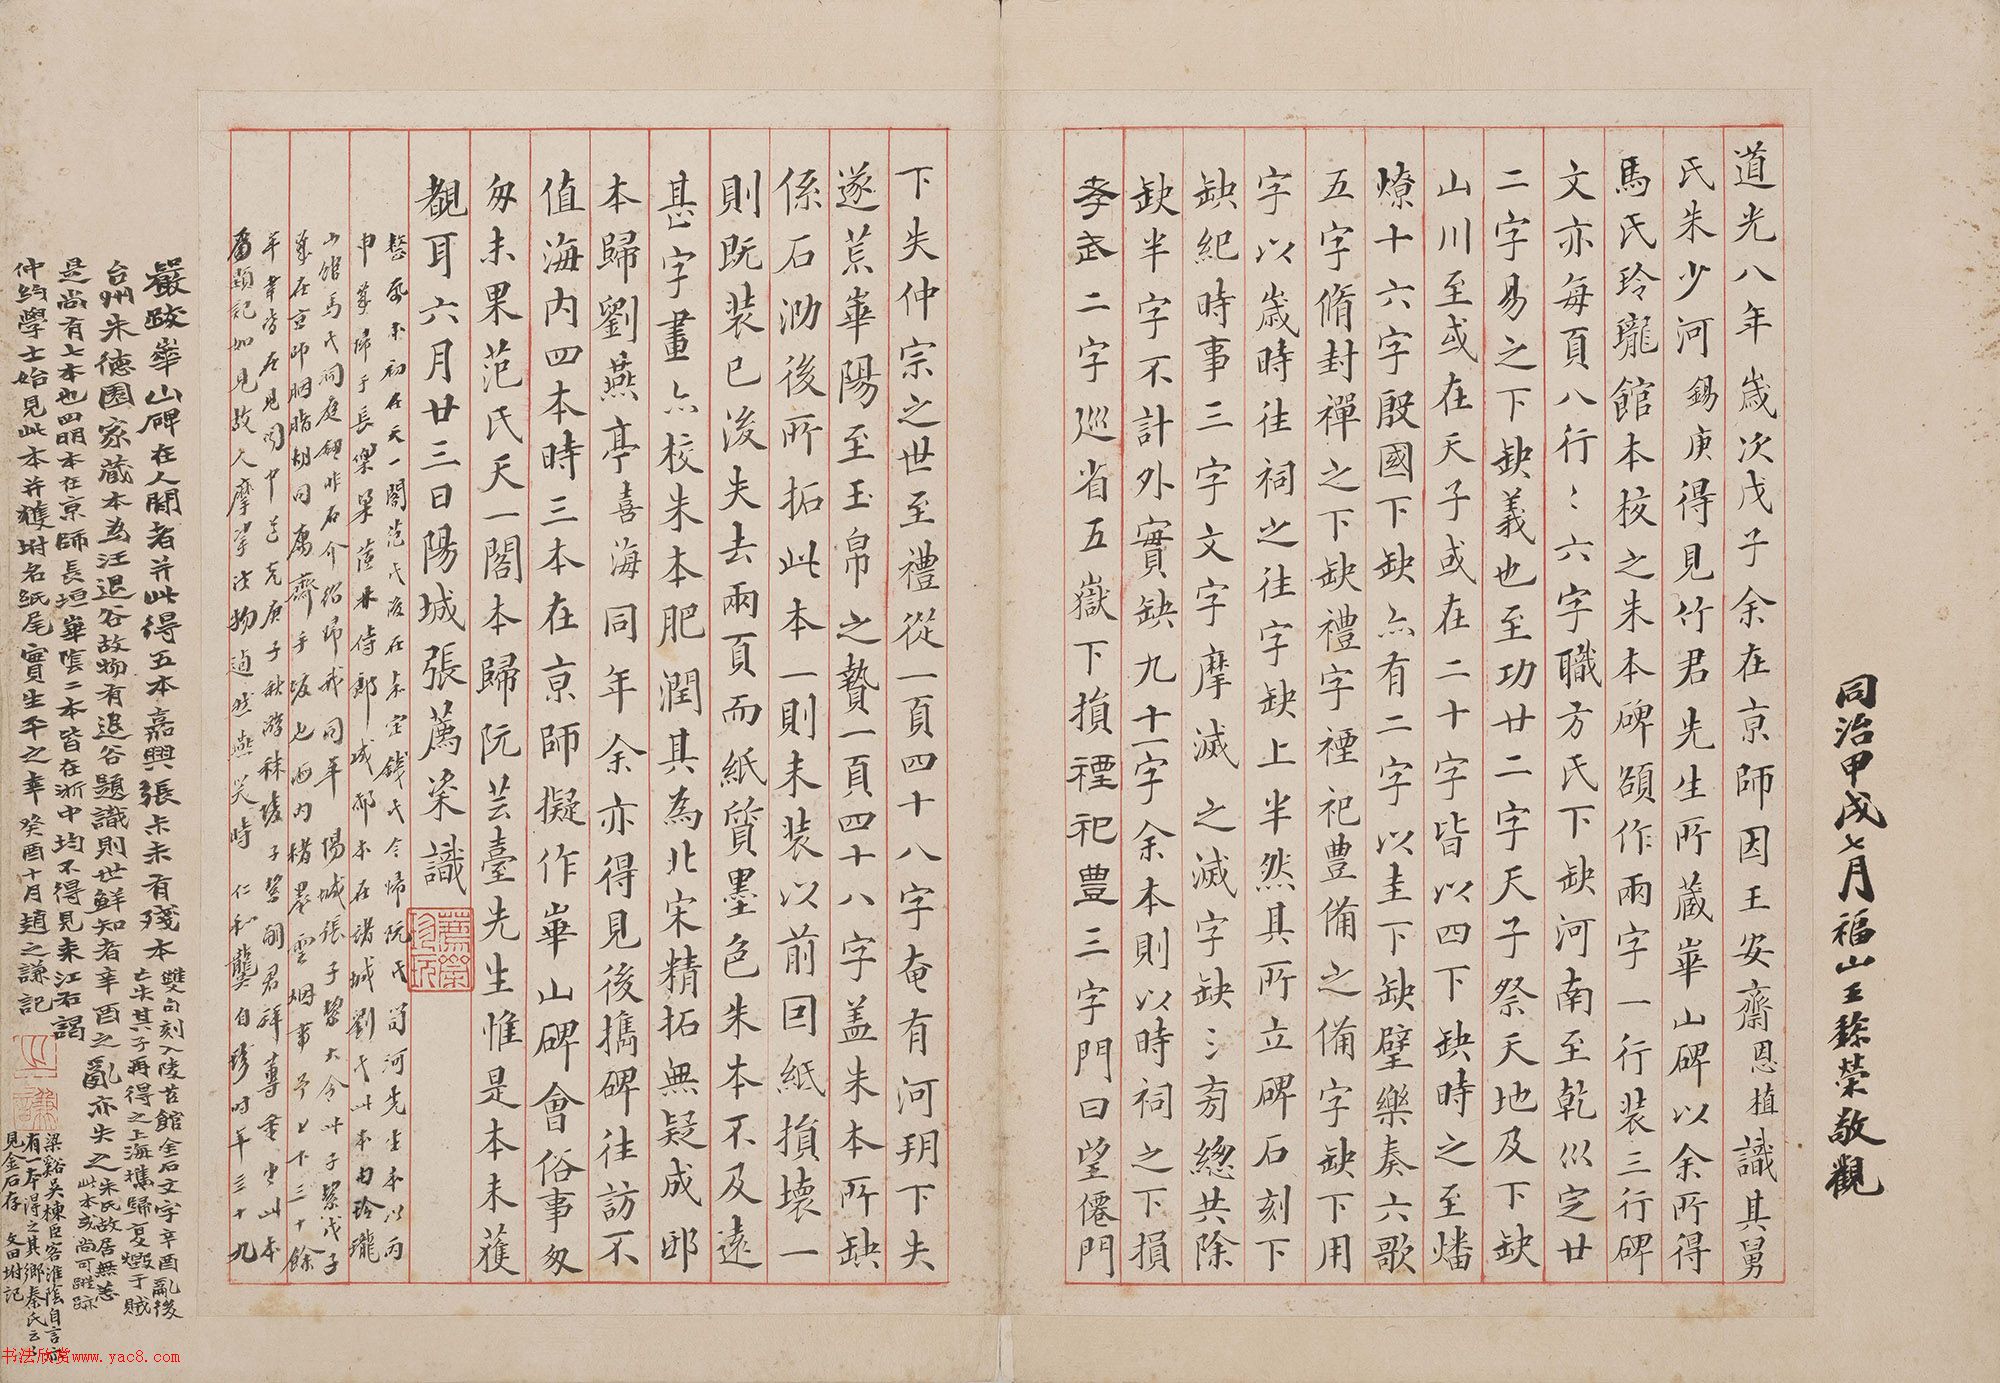 同治甲戌七月福山王懿榮敬觀
道光八年歲次戊子余在京師因王安齋恩植識其舅
氏朱少河錫庚得見竹君先生所藏崋山碑以余所得
馬氏玲瓏館本校之朱本碑額作兩字一行裝三行碑
文亦每頁八行行六字職方氏下缺河南至乾以定廿
二字易之下缺義也至功廿二字天子祭天地及下缺
山川至或在天子或在二十字皆以四下缺時之至燔
燎十六字殷國下缺亦有二字以圭下缺璧樂奏六歌
五字脩封禪之下缺禮字禋祀豊備之備字缺下用
字以歲時往祠之往字缺上半然其所立碑石刻下
缺紀時事三字文字摩滅之滅字缺氵旁緫共除
缺半字不計外實缺九十一字余本則以時祠之下損
孝武二字巡省五嶽下損禋祀豊三字門曰望僊門
下失仲宗之世至禮從一頁四十八字奄有河玥下失
遂荒崋陽至玉帛之贄一頁四十八字盖朱本所缺
係石泐後所拓此本一則未裝以前回紙損壞一
則既裝已後失去兩頁而紙質墨色朱本不及遠
甚字畫亦校朱本肥潤其為北宋精拓無疑成邸
本歸劉燕亭喜海同年余亦得見後攜碑往訪不
值海内四本時三本在京師擬作崋山碑會俗事匆
匆未果范氏天一閣本歸阮芸臺先生惟是本未獲
覩耳六月廿三日陽城張薦粢識
整本初在天一閣范氏後在嘉定錢氏今歸阮氏笥河先生本以丙
申歲歸于長樂梁茝林侍郎成邸本在諸城劉氏此本由玲瓏
山館馬氏詞庭鈕非石介紹歸我同年陽城張子絜大令此子絜戊子
歲在京師胭脂胡同寓齋手跋也西内楮墨雲烟事予上下三十餘
年聿皆在見聞中之克庚子秋游秣陵子絜嗣君拜尊重出此本
屬題記如見故人摩挲法物逌然燕笑時 仁和龔自珍时年三十九
嚴跋崋山碑在人間者并此得五本嘉興張未未有殘本雙勾刻入陵苕館金石文字辛酉亂後
亡失其子再得之上海攜歸复燬于賊
台州朱德園家藏本為汪退谷故物有退谷題識則世鮮知者辛酉之亂亦失之朱氏故居無恙
此本或尚可蹤跡
是尚有七本也四朙本在京師長垣崋陰二本皆在浙中均不得見来江右謁
仲約學士始見此本并獲坿名紙尾實生平之幸 癸酉十月趙之謙記
梁谿吳棟臣客淮陰自言
有一本得之其鄉秦氏云
見金石存 文田坿記
书法欣赏www.yac8.com